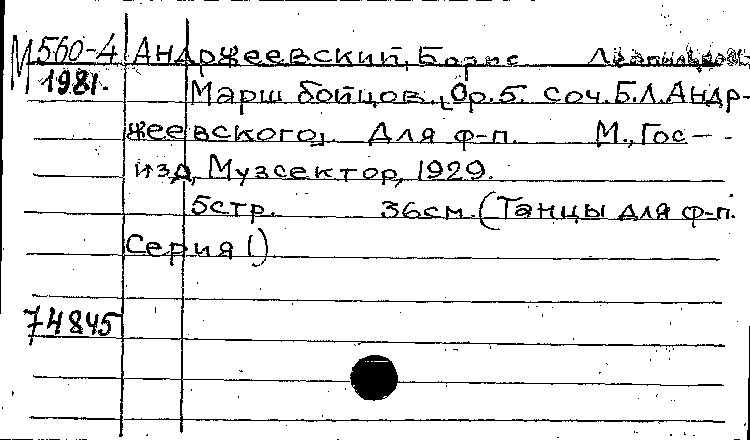 М 560-4 Андржеевский, Борис
1981.
Марш бойцов. [Ор.5. соч. Б.Л. Андр-
жеевского] Для ф-п. М., Гос-
изд, Музсектор, 1929.
5стр. 36см. (Танцы для ф-п.
Серия I)
74845